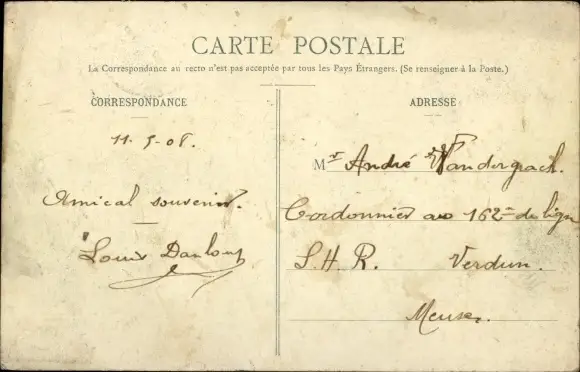 CARTE POSTALE
La Correspondance au recto n'est pas acceptée par tous les Pays Étrangers. (Se renseigner à la Poste.)
CORRESPONDANCE
11-5-08.
Amical souvenir.
Louis Danloup
ADRESSE
Mr André Vandergrach.
Cordonnier au 162me de lign
S.H.R. Verdun.
Meuse.